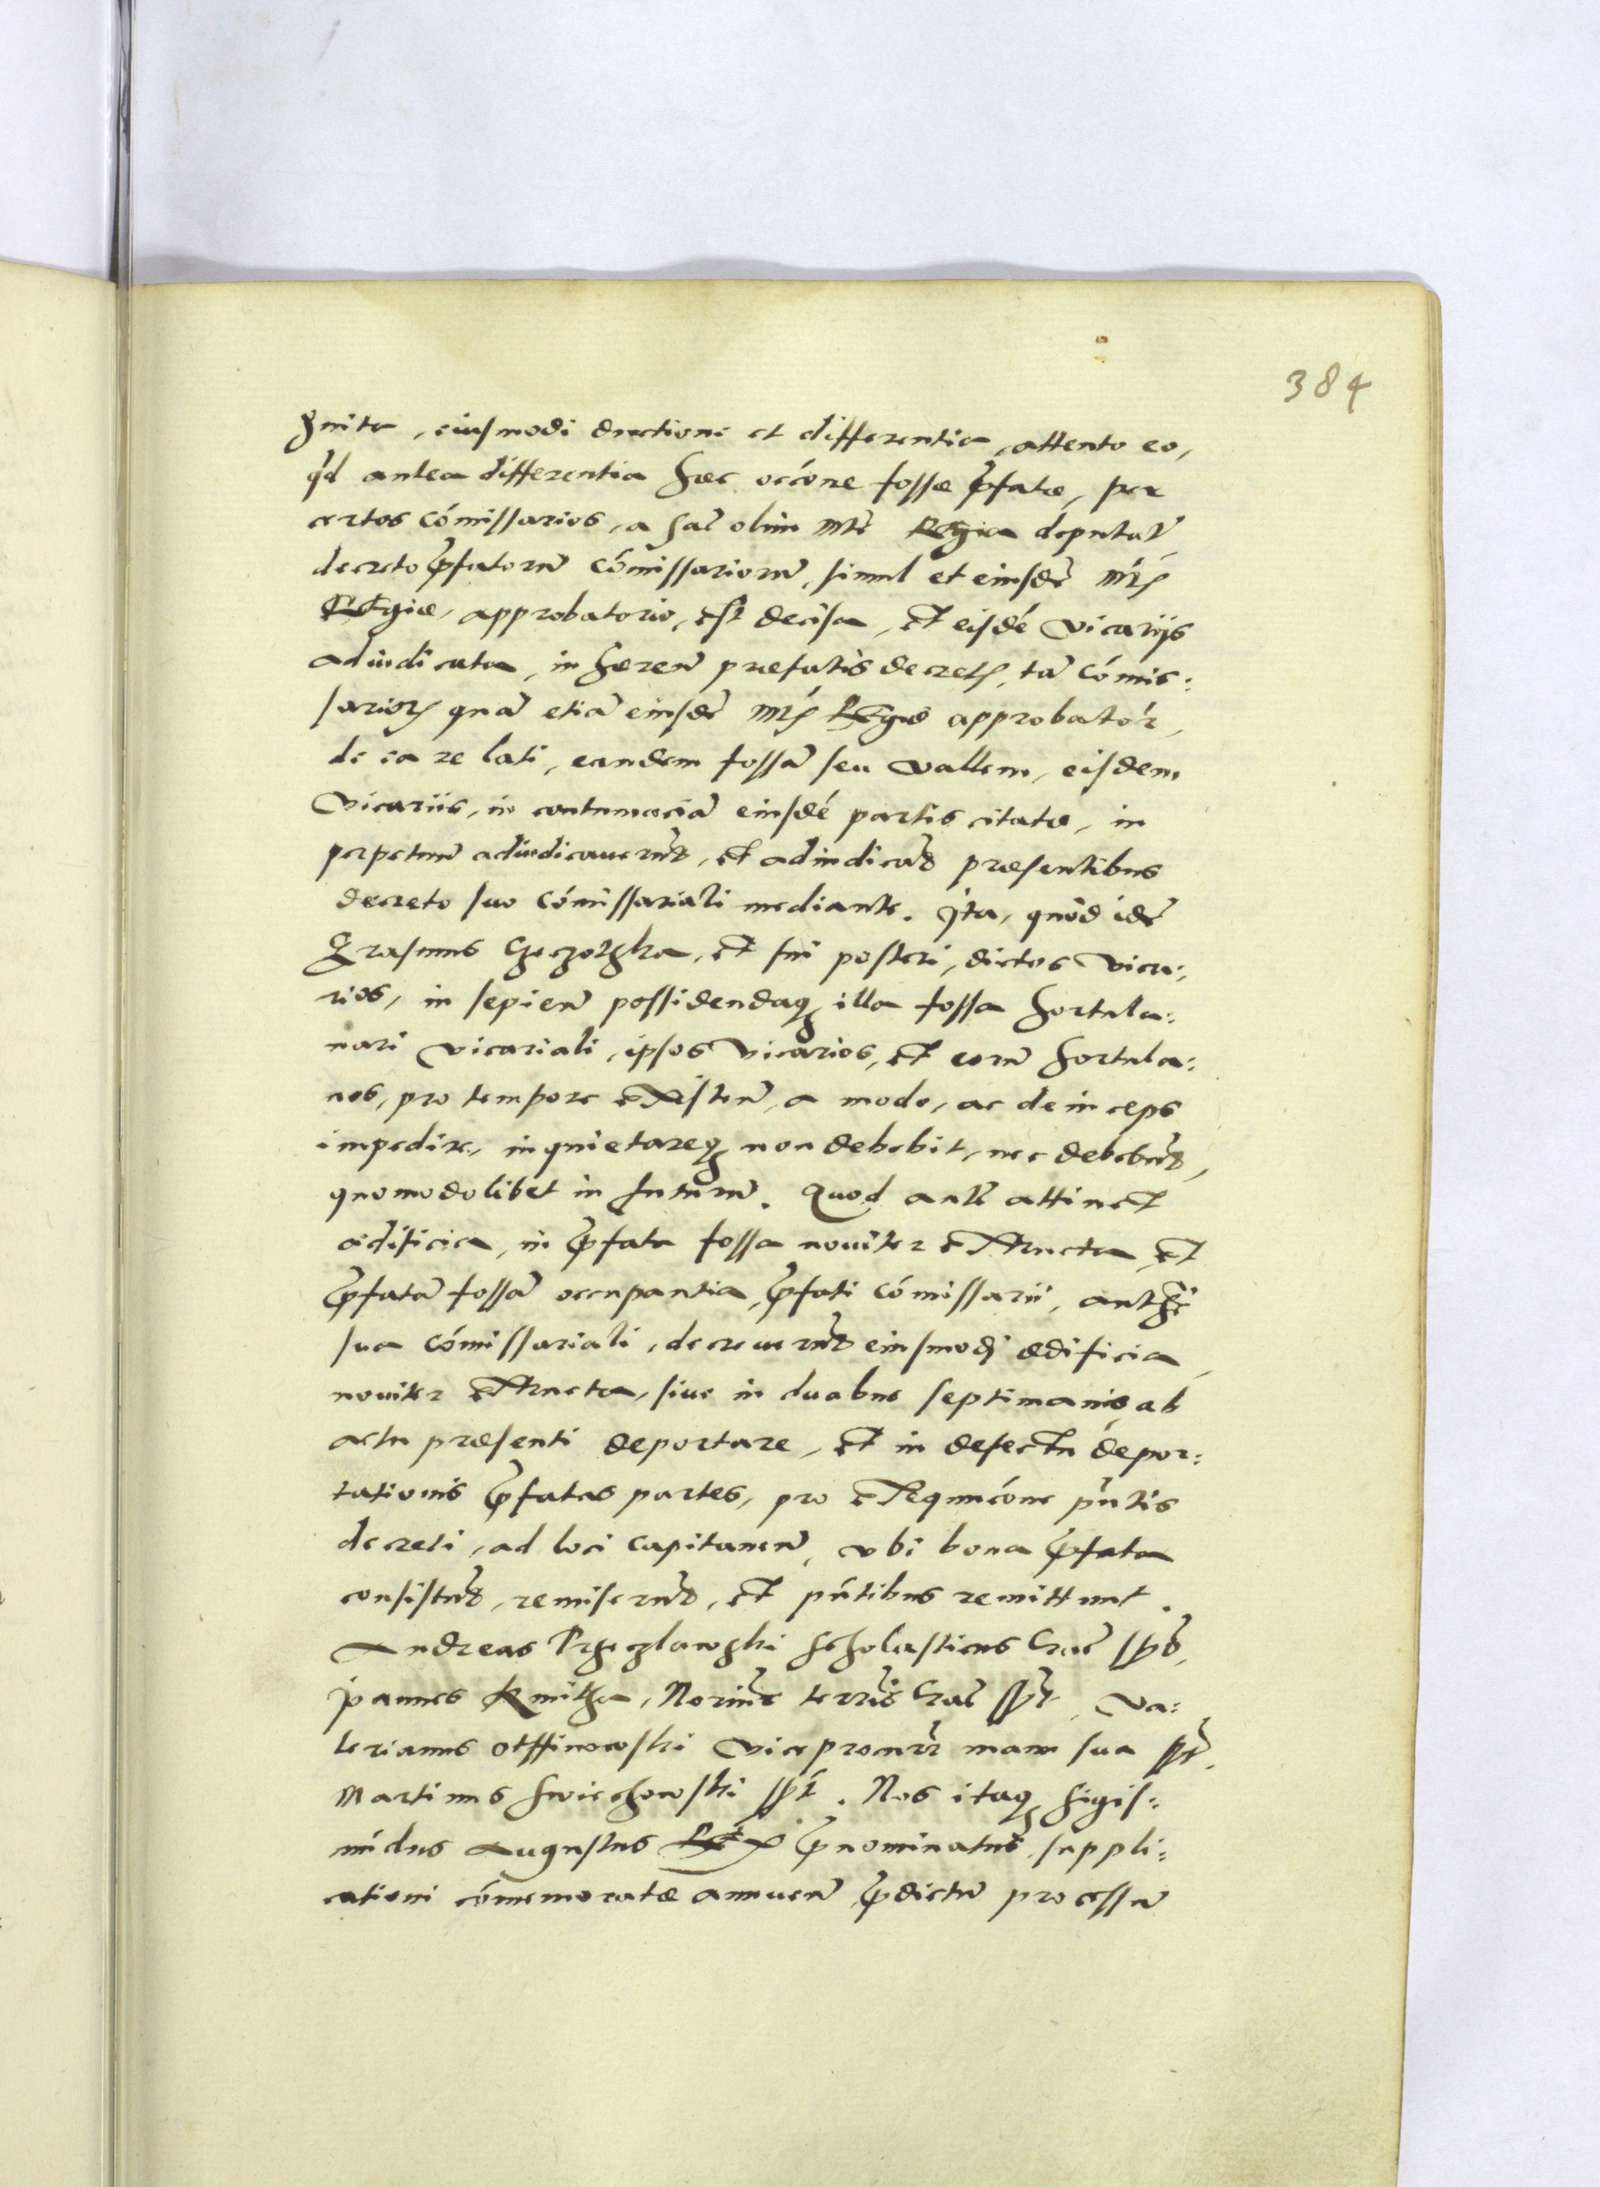 384
gnita, eiusmodi ductione et differentia, attento eo,
qd antea differentia haec occone fossae pfatae, per
certos comissarios, a Sac olim Mte Regia deputat
decreto pfatorum comissariorum, simul et eiusde Mtis
Regiae, approbatorio, est decisa, et eisdé Vicariis
adiudicata, in haeren praefatis decretis, tam comis:
sarior quam etiam eiusde Mtis Regiae approbator,
de ea re lati, eandem fossam seu vallem, eisdem
Vicariis, in contumaciam eiusdé partis citatae, in
perpetuum adiudicauerunt, et adiudicant praesentibus
decreto suo comissariali mediante. Ita, quod idem
Erasmus Czeczotzka, et sui posteri, dictos Vica:
rios, in sepien possidendaq illa fossa hortula:
nari vicariali, ipsos Vicarios, et eorum hortula:
nos, pro tempore existen, a modo, ac deinceps
impedire, inquietareq non debebit, nec debebunt,
quomodolibet in futurum. Quod autem attinet
aedificia, in pfata fossa nouiter extructa, et
pfatam fossam occupantia, pfati comissarii, authe
sua comissariali, decreuerunt eiusmodi aedificia
nouiter extructa, siue in duabus septimanis ab
actu praesenti deportare, et in defectu depor:
tationis pfatas partes, pro exequucone pntis
decreti, ad loci Capitaneum, vbi bona pfata
consistunt, remiserunt, et pntibus remittunt.
Andreas Przeczlawski Scholasticus Crac spt,
Joannes Kmitha, Notarius terris Crac spt, Va:
lerianus Otffinowski Viceprocurr manu sua spt,
Martinus Swiechowski spt. Nos itaq Sigis:
mūdus Augustus Rex pnominatus, suppli:
cationi comemoratae annuen pdictum processum